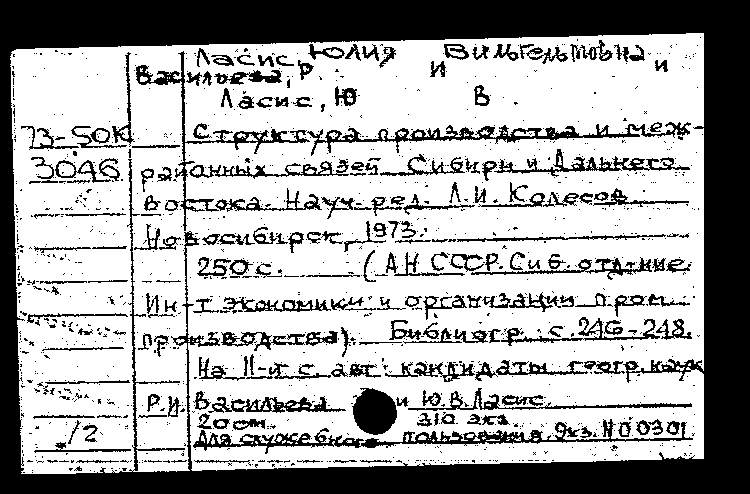 Ласис, Юлия Вильгельмовна
Васильева, Р. и и
Ласис, Ю В.
73-50К Структура производства и меж-
3046 районных связей Сибири и Дальнего
Востока. Науч. ред. Л.И. Колесов
Новосибирск, 1973.
250 с. (АН СССР. Сиб. отд-ние.
Ин-т экономики и организации пром.
производства). Библиогр.: с. 246-248.
На II-й с. авт.: кандидаты геогр. наук
Р.И. Васильева и Ю.В. Ласис.
20 см. 310 экз.
/2 Для служебного пользования. Экз. N00301